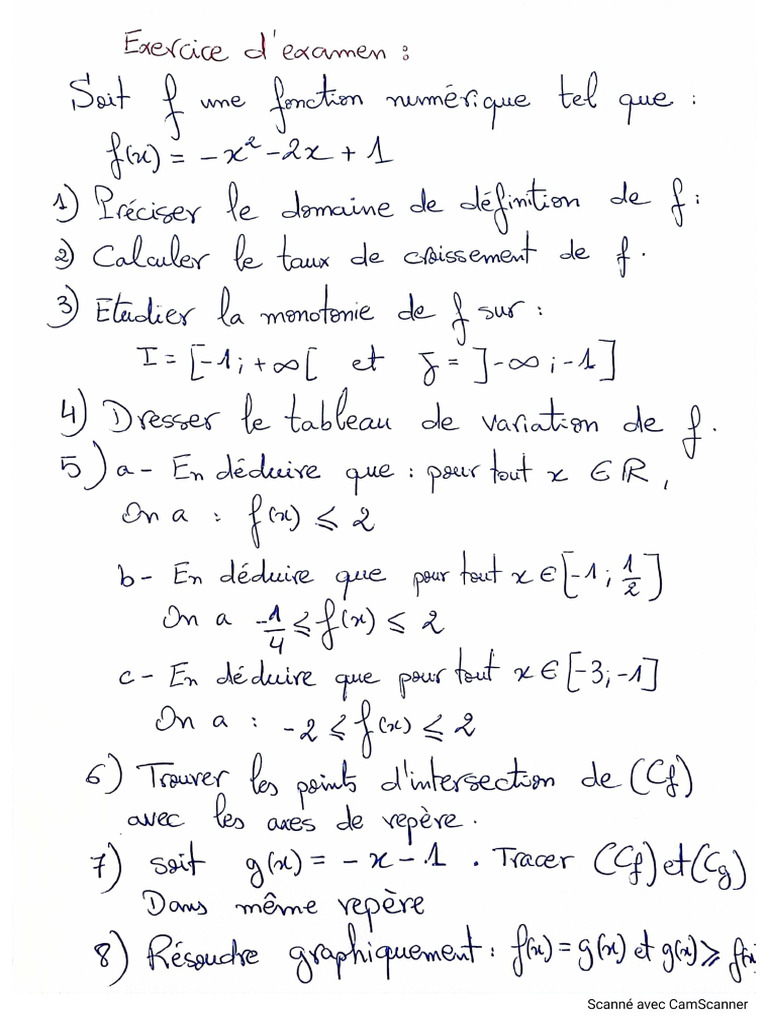 Exercice d'examen :
Soit f une fonction numérique tel que :
f(x) = -x² - 2x + 1
1) Préciser le domaine de définition de f :
2) Calculer le taux de croissement de f.
3) Etudier la monotonie de f sur :
I = [-1 ; +∞[ et J = ]-∞ ; -1]
4) Dresser le tableau de variation de f.
5) a - En déduire que : pour tout x ∈ ℝ,
On a : f(x) ⩽ 2
b - En déduire que pour tout x ∈ [-1 ; 1/2]
On a -1/4 ⩽ f(x) ⩽ 2
c - En déduire que pour tout x ∈ [-3 ; -1]
On a : -2 ⩽ f(x) ⩽ 2
6) Trouver les points d'intersection de (Cf)
avec les axes de repère.
7) soit g(x) = -x - 1 . Tracer (Cf) et (Cg)
Dans même repère
8) Résoudre graphiquement : f(x) = g(x) et g(x) ⩾ f(x
Scanné avec CamScanner